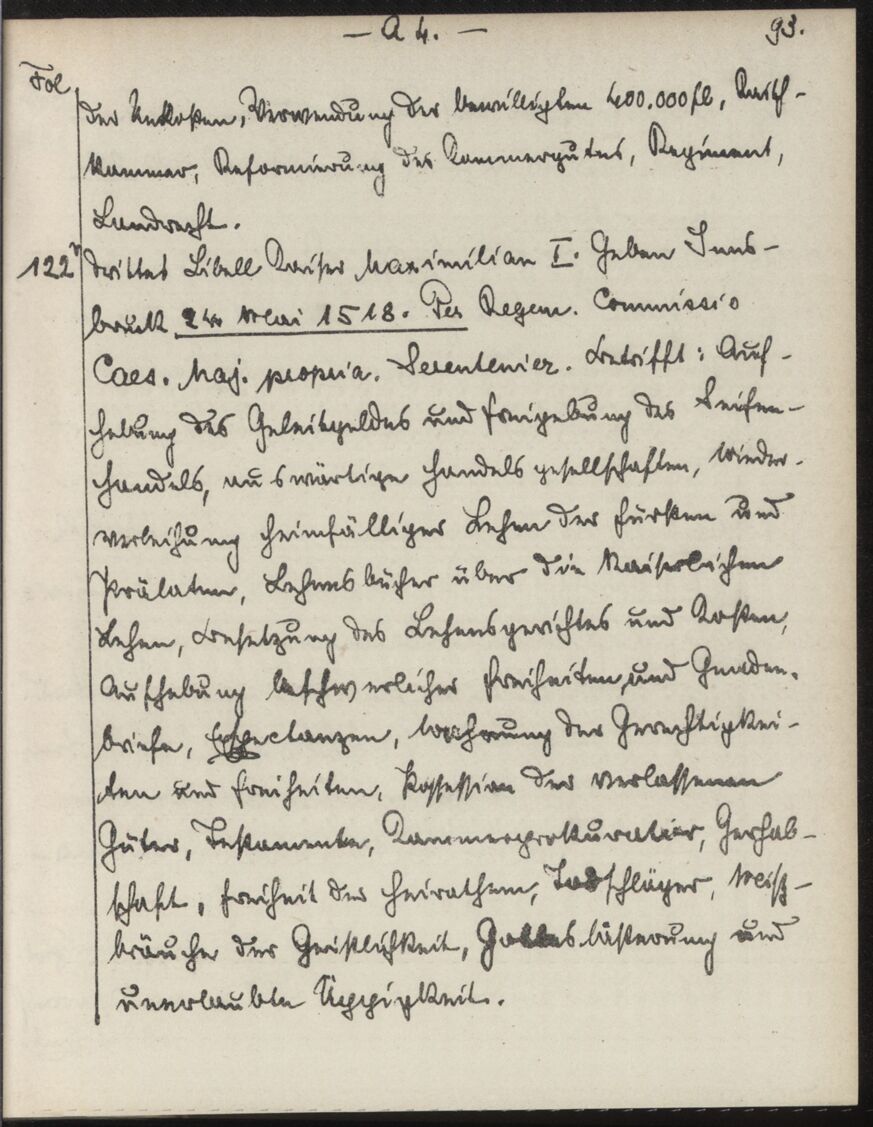 — A 4. —
93.
Fol
der Unkosten, Verwendung der bewilligten 400.000 fl, Raith-
kammer, Reformierung des Kammergutes, Regiment,
Landrecht.
122r drittes Libell Kaiser Maximilian I. Geben Inns-
bruck 24 Mai 1518. Per Regem. Commissio
Caes. Maj. propria. Serenteiner. Betrifft: Auf-
hebung des Geleitgeldes und Freigebung des Seifen-
handels, auswärtige Handelsgesellschaften, Wieder-
verleihung heimfälliger Lehen der Fürsten und
Prälaten, Lehensbücher über die kaiserlichen
Lehen, Besetzung des Lehensgerichtes und Kosten,
Aufhebung beschwerlicher Freiheiten und Gnaden-
briefe, Expectanzen, der Gerechtigkei-
ten und Freiheiten, Possession der verlassenen
Güter, Testamente, Kammerprokurator, Gerhab-
schaft, Freiheit der Heirathen, Todschläger, Miß-
bräuche der Geistlichkeit, Gotteslästerung und
unerlaubte Üppigkeit.